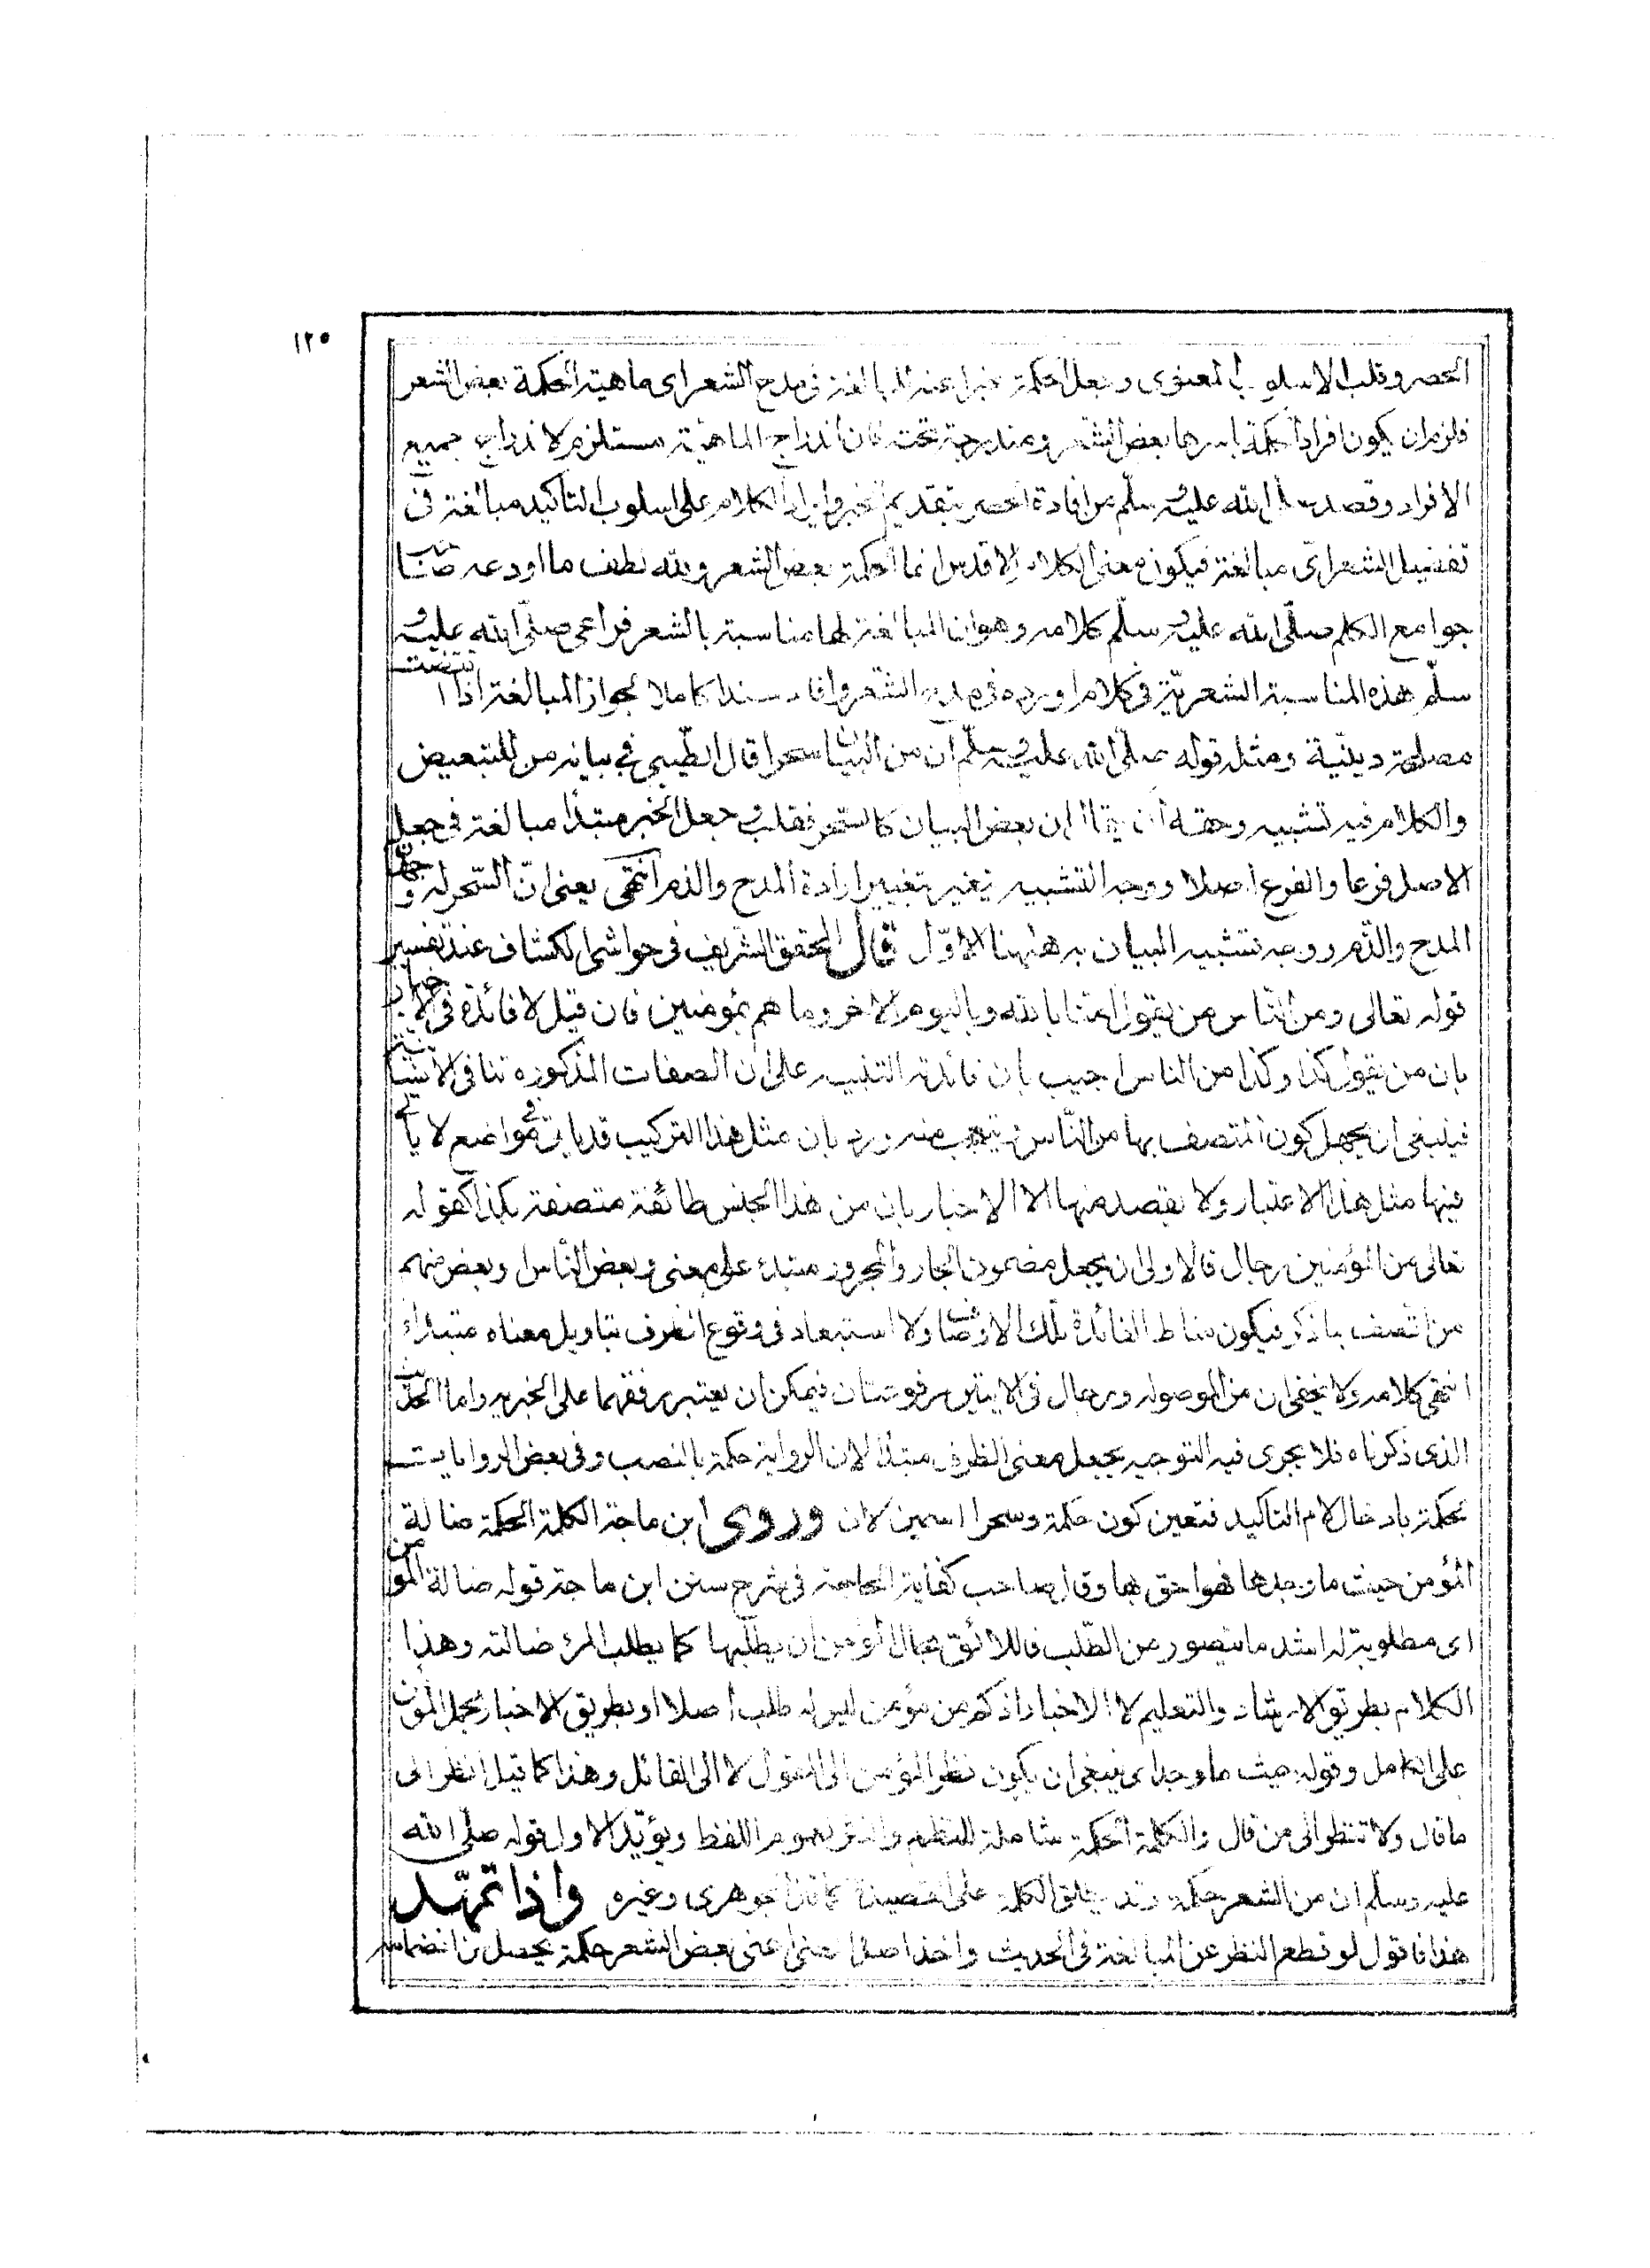 ١٢٥
الحصر وقلب الاسلوب المعنوى وجعل الحكمة خبرا عنه للمبالغة فى مدح الشعر اى ماهية الحكمة بعض الشعر
فلزم ان يكون افراد الحكمة باسرها بعض الشعر ومندرجة تحته فان اندراج الماهية مستلزم لاندراج جميع
الافراد وقصد صلى الله عليه وسلّم من افادة الحصر بتقديم الخبر وايراد الكلام على اسلوب التاكيد مبالغة فى
تفضيل الشعر اىّ مبالغة فيكون معنى الكلام الاقدس انما الحكمة بعض الشعر ولله لطف ما اودعه صاحب
جوامع الكلم صلّى الله عليه وسلّم كلامه وهو ان المبالغة لها مناسبة بالشعر فراعى صلّى الله عليه و
سلّم هذه المناسبة الشعريّة فى كلام اورده فى مدح الشعر وافاد سندا كاملا لجواز المبالغة اذا اقتضت
مصلحة دينيّة ومثل قوله صلّى الله عليه وسلّم ان من البيان لسحرا قال الطّيبى فى بيانه من للتبعيض
والكلام فيه تشبيه وحقه ان يقال ان بعض البيان كالسحر فقلب وجعل الخبر مبتدأ مبالغة فى جعل
الاصل فرعا والفرع اصلا ووجه التشبيه يتغير بتغيير ارادة المدح والذم انتهى يعنى انّ السّحر له وجهان
المدح والذّم ووجه تشبيه البيان به هاهنا الاوّل قال المحقق الشريف فى حواشى الكشاف عند تفسير
قوله تعالى ومن النّاس من يقول امنا بالله وباليوم الاخر وما هم بمؤمنين فان قيل لا فائدة فى الاخبار
بان من يقول كذا وكذا من الناس اجيب بان فائدته التنبيه على ان الصفات المذكورة تنافى الانسانية
فينبغى ان يجهل كون المتصف بها من النّاس ويتعجب منه ورد بان مثل هذا التركيب قد ياتى فى مواضع لا يأتى
فيها مثل هذا الاعتبار ولا يقصد منها الا الاخبار بان من هذا الجنس طائفة متصفة بكذا كقوله
تعالى من المؤمنين رجال فالاولى ان يجعل مضمون الجار والمجرور مبتدء على معنى وبعض النّاس او بعض منهم
من اتّصف بما ذكر فيكون مناط الفائدة تلك الاوصاف ولا استبعاد فى وقوع الظرف بتاويل معناه مبتداء
انتهى كلامه ولا يخفى ان من الموصولة ورجال فى الايتين مرفوعتان فيمكن ان يعتبر رفعهما على الخبرية واما الحديث
الذى ذكرناه فلا يجرى فيه التوجيه بجعل معنى الظرف مبتدأ لان الرواية حكمة بالنصب وفى بعض الروايات
لحكمة بادخال لام التاكيد فتعين كون حكمة وسحرا اسمين لان وروى ابن ماجة الكلمة الحكمة ضالة
المؤمن حيث ما وجدها فهو احق بها وقال صاحب كفاية الحاجة فى شرح سنن ابن ماجة قوله ضالة المؤمن
اى مطلوبة له اشد ما يتصور من الطّلب فاللائق بحال المؤمن ان يطلبها كما يطلب المرء ضالته وهذا
الكلام بطريق الارشاد والتعليم لا الاخبار اذ كم من مؤمن ليس له طلب اصلا او بطريق الاخبار بحمل المؤمن
على الكامل وقوله حيث ما وجد اى ينبغى ان يكون نظر المؤمن الى المقول لا الى القائل وهذا كما قيل انظر الى
ما قال ولا تنظر الى من قال والكلمة الحكمة شاملة للنظم والنثر لعموم اللفظ ويؤيّد الاول قوله صلّى الله
عليه وسلّم ان من الشعر حكمة وقد يطلق الكلمة على القصيدة كما قال الجوهرى وغيره واذا تمهّد
هذا فاقول لو قطع النظر عن المبالغة فى الحديث واخذ اصل المعنى اعنى بعض الشعر حكمة يحصل من انضمامه